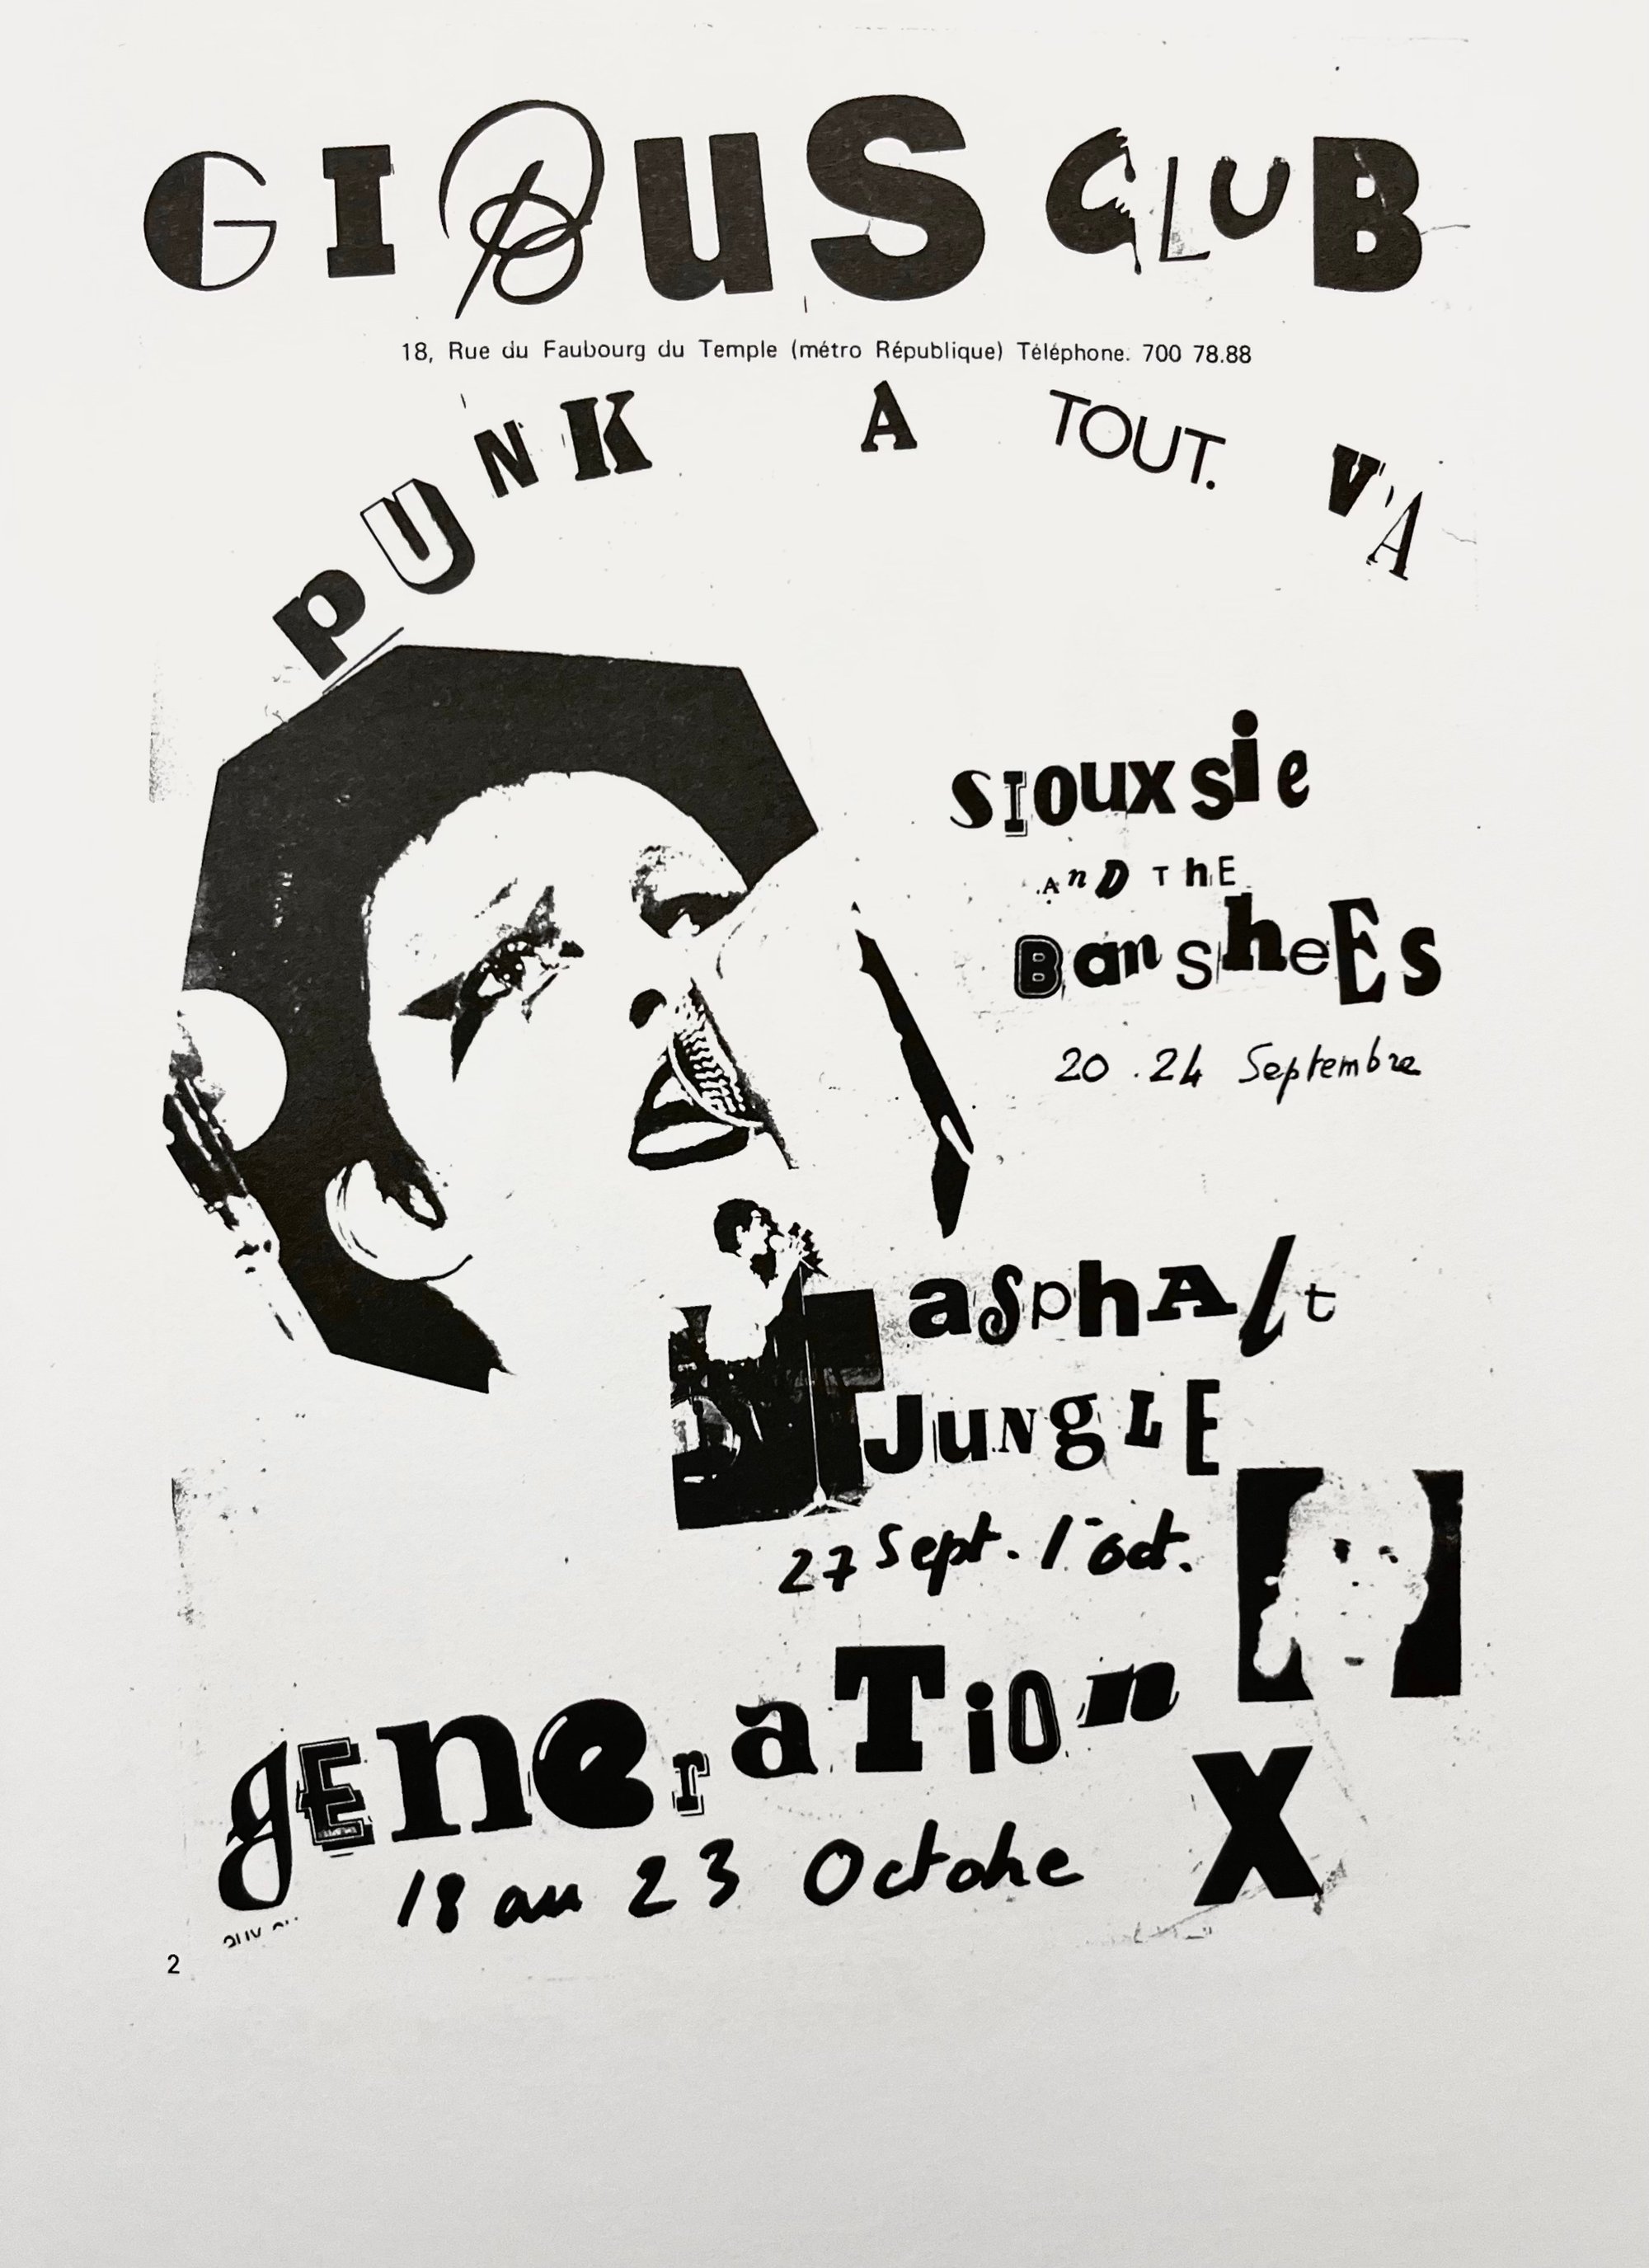 GIBUS CLUB
18, Rue du Faubourg du Temple (métro République) Téléphone. 700 78.88
PUNK A TOUT. VA
SIOUXSiE
AnD ThE
BanSheEs
20.24 Septembre
aSphAlt
JuNgLE
27 Sept. 1er oct.
gEneraTiOn
X
18 au 23 Octobre
2